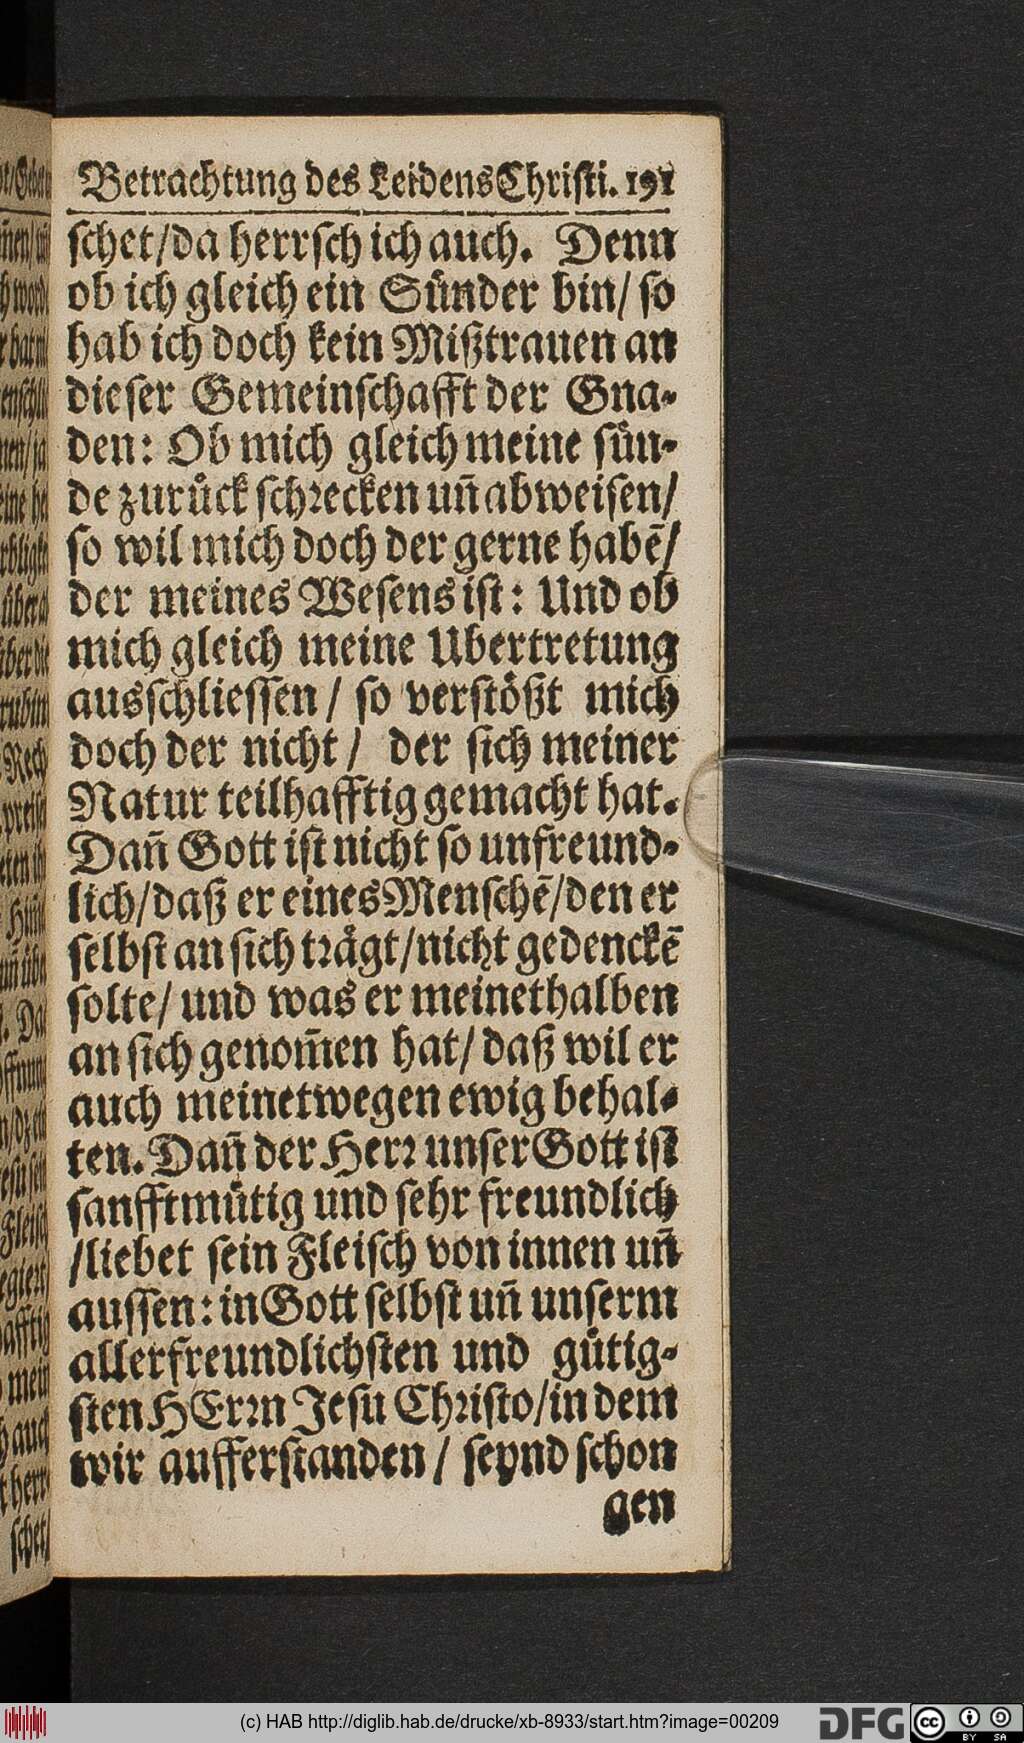 Betrachtung des Leidens Christi. 191
schet/da herrsch ich auch. Denn
ob ich gleich ein Sünder bin/ so
hab ich doch kein Mißtrauen an
dieser Gemeinschafft der Gna-
den: Ob mich gleich meine sün-
de zurück schrecken uñ abweisen/
so wil mich doch der gerne habẽ/
der meines Wesens ist: Und ob
mich gleich meine Ubertretung
ausschliessen / so verstößt mich
doch der nicht / der sich meiner
Natur teilhafftig gemacht hat.
Dañ Gott ist nicht so unfreund-
lich/daß er eines Menschẽ/den er
selbst an sich trägt/nicht gedenckẽ
solte/ und was er meinethalben
an sich genom̃en hat/ daß wil er
auch meinetwegen ewig behal-
ten. Dañ der Herr unser Gott ist
sanfftmütig und sehr freundlich
/liebet sein Fleisch von innen uñ
aussen: in Gott selbst uñ unserm
allerfreundlichsten und gütig-
sten HErrn Jesu Christo/in dem
wir aufferstanden / seynd schon
gen
(c) HAB http://diglib.hab.de/drucke/xb-8933/start.htm?image=00209
DFG
cc BY SA